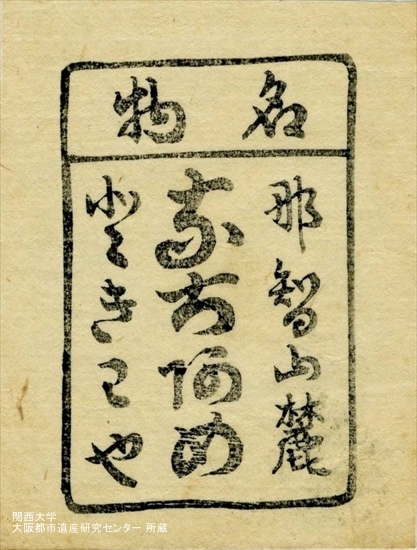 名物
那智山麓
なち阿め
ときわや
関西大学
大阪都市遺産研究センター 所蔵